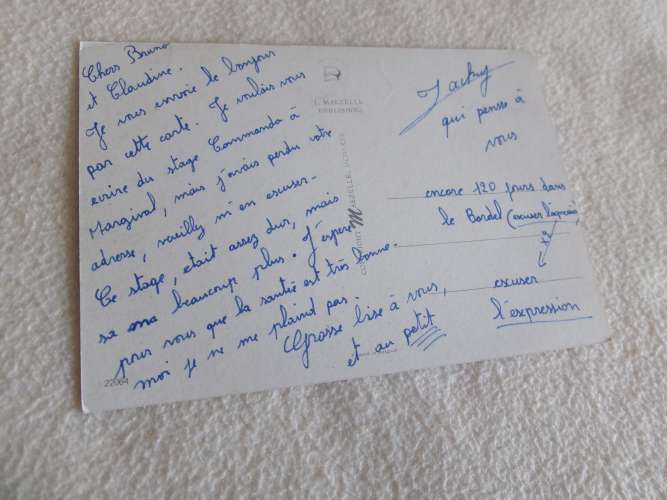 Chers Bruno
et Claudine.
Je vous envoie le bonjour
par cette carte. Je voulais vous
ecrire du stage Commando à
Margival, mais j'avais perdu votre
adresse, veuilly m'en escuser.
Ce stage, etait assez dur, mais
sa ma beaucoup plus. J'espere
pour vous que la santié est très bonne.
moi je ne me plaind pas.
Grosse bise à vous,
et au petit
22064
MARZELLE
PUBLISHING
COPYRIGHT MARZELLE
Jacky
qui pense à
vous
encore 120 jours dans
le Bordel (escuser
escuser
l'expression